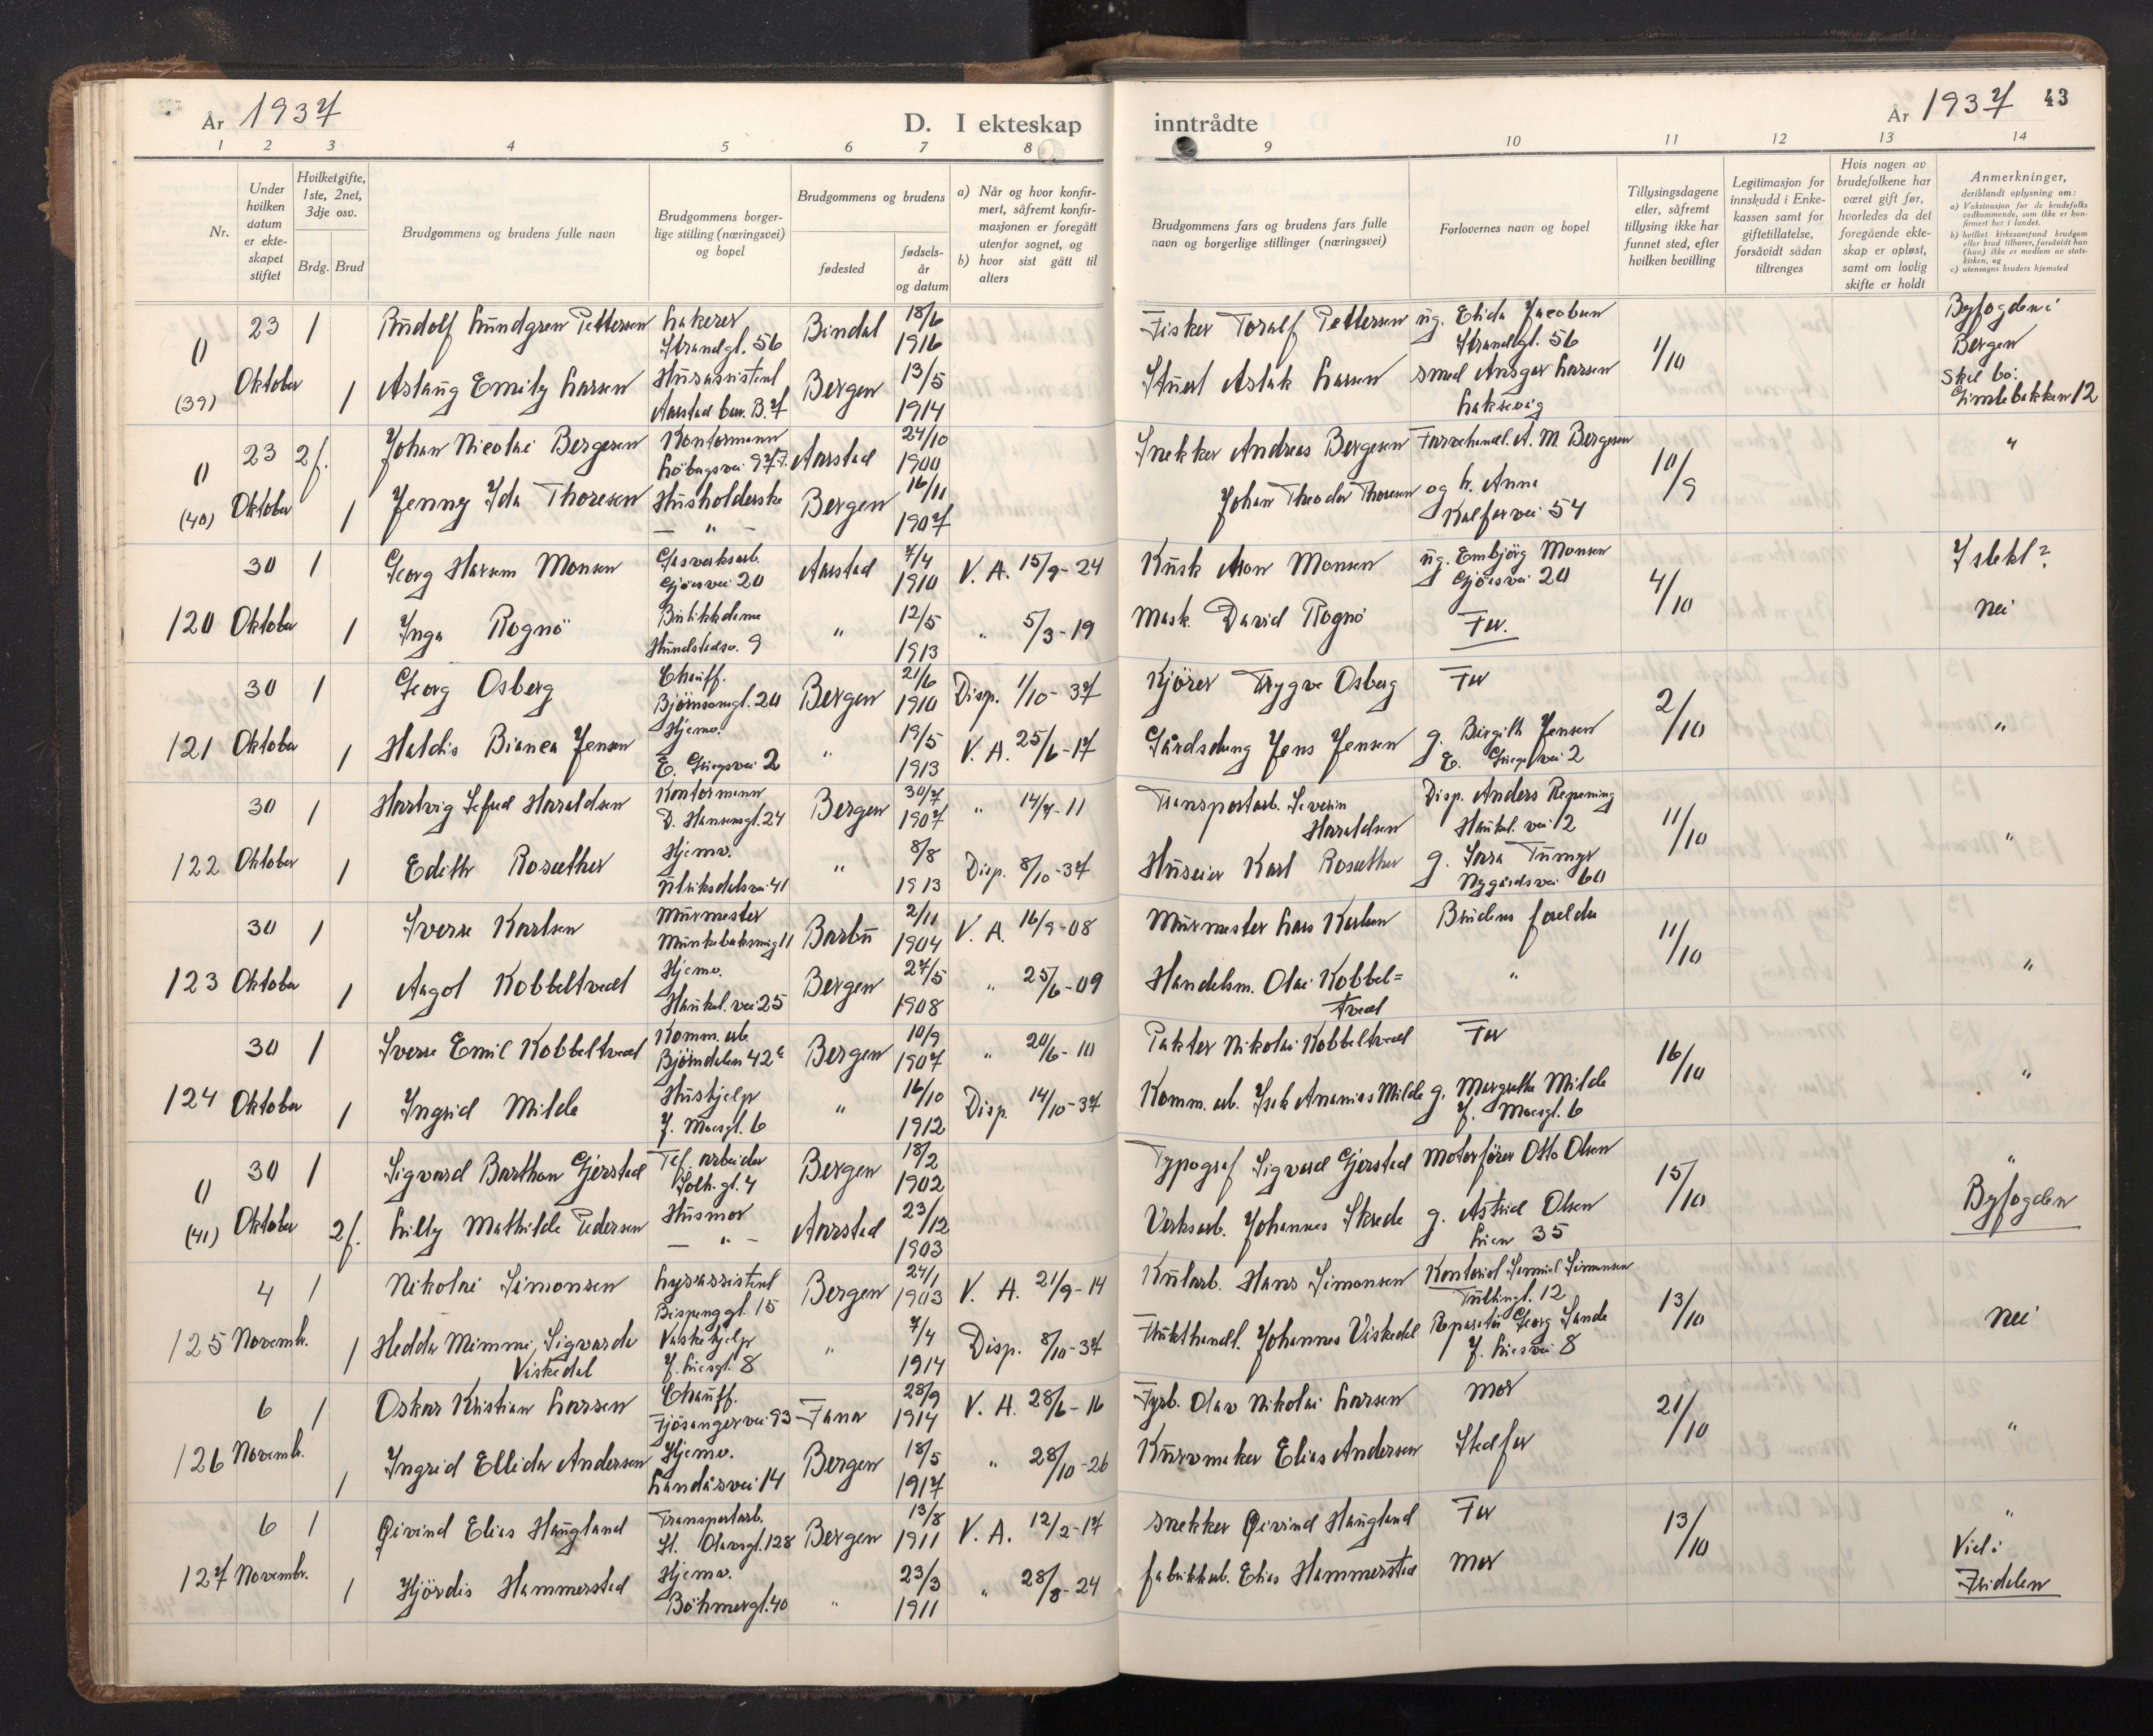 År 1937
D. I ekteskap
inntrådte
År 1937 43
1 2 3 4 5 6 7 8
9 10 11 12 13 14
Nr.
Under hvilken datum er ekteskapet stiftet
Hvilket gifte, 1ste, 2net, 3dje osv.
Brdg. Brud
Brudgommens og brudens fulle navn
Brudgommens borgerlige stilling (næringsvei) og bopel
Brudgommens og brudens
fødested
fødselsår og datum
a) Når og hvor konfirmert, såfremt konfirmasjonen er foregått utenfor sognet, og
b) hvor sist gått til alters
Brudgommens fars og brudens fars fulle navn og borgerlige stillinger (næringsvei)
Forlovernes navn og bopel
Tillysingsdagene eller, såfremt tillysing ikke har funnet sted, efter hvilken bevilling
Legitimasjon for innskudd i Enkekassen samt for giftetillatelse, forsåvidt sådan tiltrenges
Hvis nogen av brudefolkene har været gift før, hvorledes da det foregående ekteskap er opløst, samt om lovlig skifte er holdt
Anmerkninger,
deriblandt oplysning om:
a) Vaksinasjon for de brudefolks vedkommende, som ikke er konfirmert her i landet.
b) hvilket kirkesamfund brudgom eller brud tilhører, forsåvidt han (hun) ikke er medlem av statskirken, og
c) utensogns bruders hjemsted
() 23 1 Rudolf Lundgren Pettersen Lakerer Strandgt. 56 Bindal 18/6 1916 Fisker Toralf Pettersen ug. Elida Jacobsen Strandgt. 56 1/10 Byfogden i Bergen
(39) Oktober 1 Aslaug Emily Larsen Husassistent Aarstad bar. B.7 Bergen 13/5 1914 Stuert Aslak Larsen smed Ansgar Larsen Laksevåg Skal bo: Gimlebakken 12
() 23 2f. Johan Nicolai Bergesen Kontormann Løbergsvei 97 F. Aarstad 24/10 1900 Snekker Andreas Bergesen Farvehandl. A. M. Bergesen 10/9 "
(40) Oktober 1 Jenny Ida Thoresen Husholderske — " — Bergen 16/11 1907 Johan Theodor Thoresen og h. Anna Kalfarvei 54
30 1 Georg Harsem Monsen Gasverksarb. Gjøesvei 20 Aarstad 7/4 1910 V. A. 15/9-24 Kusk Aron Monsen ug. Embjørg Monsen Gjøesvei 20 4/10 I slekt?
120 Oktober 1 Inga Rognö Butikkdame Hunstedsv. 9 " 12/5 1913 " 5/3-19 Mask. David Rognö Far. nei
30 1 Georg Osberg Chauff. Bjørnsonsgt. 20 Bergen 21/6 1910 Disp. 1/10-37 Kjörer Trygve Osberg Far 2/10
121 Oktober 1 Haldis Bianca Jensen Hjemv. E. Griegsvei 2 " 19/5 1913 V. A. 25/6-17 Gårdsdreng Jens Jensen g. Birgith Jensen E. Griegsvei 2 "
30 1 Hartvig Sefred Haraldsen Kontormann D. Hansensgt. 24 Bergen 30/7 1907 " 14/4-11 Transportarb. Severin Haraldsen Disp. Anders Repening Haukel. vei 12 11/10
122 Oktober 1 Edith Rosæther Hjemv. Ulriksdalsvei 41 " 8/8 1913 Disp. 8/10-37 Huseier Karl Rosæther g. Sara Nygårdsvei 60 "
30 1 Sverre Karlsen Murmester Munkebotsveg 11 Barbu 2/11 1904 V. A. 16/9-08 Murmester Lars Karlsen Brudens foreldre 11/10
123 Oktober 1 Aagot Kobbeltvedt Hjemv. Haukel. vei 25 Bergen 27/5 1908 " 25/6-09 Handelsm. Olai Kobbel=tvedt " "
30 1 Sverre Emil Kobbeltvedt Komm. arb. Björndalen 42 c Bergen 10/9 1907 " 20/6-10 Pakter Nikolai Kobbeltvedt Far 16/10
124 Oktober 1 Ingrid Milde Hushjelp J. Moesgt. 6 " 16/10 1912 Disp. 14/10-37 Komm. arb. Isak Ananias Milde g. Margrethe Milde J. Moesgt. 6 "
() 30 1 Sigvard Barthon Gjerstad Tel. arbeider Solh. gt. 4 Bergen 18/2 1902 Typograf Sigvard Gjerstad Motorförer Otto Olsen 15/10 "
(41) Oktober 2f. Lilly Mathilde Pedersen Husmor — " — Aarstad 23/12 1903 Verksarb. Johannes Skrede g. Astrid Olsen Lien 35 Byfogden
4 1 Nikolai Simonsen Lysassistent Bispenggt. 15 Bergen 24/1 1903 V. A. 21/9-14 Kularb. Hans Simonsen Kontorist Samuel Simonsen Tullingt. 12 13/10
125 Novemb. 1 Hedda Mimmi Sigvarda Viskedal Vaskehjelp J. Liesgt. 8 " 7/4 1914 Disp. 8/10-37 Frukthandl. Johannes Viskedal Reparatör Georg Sande J. Liesvei 8 nei
6 1 Oskar Kristian Larsen Chauff. Fjösangervei 93 Fana 28/9 1914 V. A. 28/6-16 Fyrb. Olav Nikolai Larsen Mor 21/10
126 Novemb. 1 Ingrid Ellida Andersen Hjemv. Landåsvei 14 Bergen 18/5 1917 " 28/10-26 Kurvmaker Elias Andersen Stedfar "
6 1 Øivind Elias Haugland Transportarb. St. Olavsgt. 128 Bergen 13/8 1911 V. A. 12/2-17 Snekker Øivind Haugland Far 13/10 "
127 Novembr. 1 Hjördis Hammerstad Hjemv. Böhmergt. 40 " 23/3 1911 " 28/8-24 fabrikkarb. Elias Hammerstad Mor Vied i Fridalen